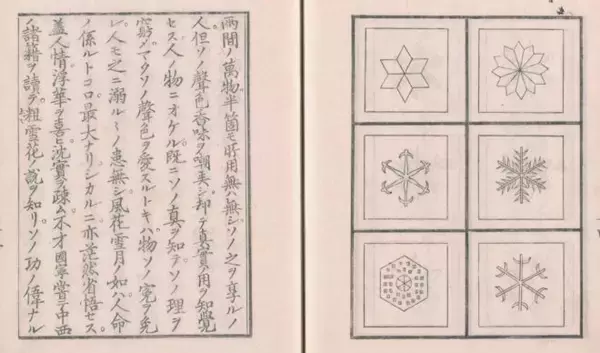 兩間ノ萬物半箇モ所用無ハ無シソノ之ヲ享ルノ
人但ソノ聲色香味ヲ嘲美シ却テ真實ノ用ヲ知覺
セス人ノ物ニオケル既ニソノ真ヲ知テソノ理ヲ
窮マタソノ聲色ヲ愛スルトキハ物ソノ寃ヲ免
レ人モ之ニ溺ルヽノ患無シ風花雪月ノ如ハ人命
ノ係ルトコロ最大ナリシカルニ亦茫然省悟セス
蓋人情浮華ヲ喜ヒ沈實ヲ疎ム不才國寧嘗テ中西
ノ諸籍ヲ讀テ粗雪花ノ説ヲ知リソノ功ノ偉ナル